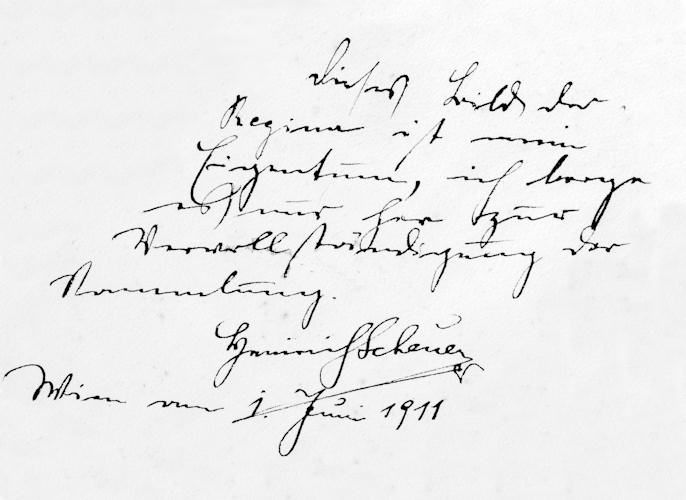 Dieses Bild der
Regina ist mein
Eigentum, ich borge
es nur her zur
Vervollständigung der
Sammlung.
Heinrich Scheuer
Wien am 1. Juni 1911